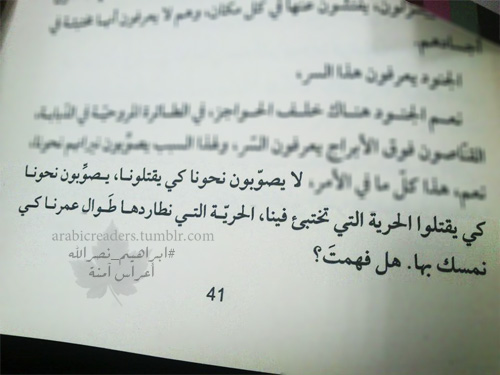 يعرفون، يفتشون عنها في كل مكان، وهم لا يعرفون أنها مختبئة في
أجسادهم.
الجنود يعرفون هذا السر.
نعم الجنود هناك خلف الحواجز، في الطائرة المروحيّة في الدبابة،
القنّاصون فوق الأبراج يعرفون السّر، ولهذا السبب يصوّبون نيرانهم نحونا.
نعم، هذا كلّ ما في الأمر، لا يصوّبون نحونا كي يقتلونـا، يـصوِّبون نحونـا
كي يقتلوا الحرية التي تختبئ فينا، الحريّـة التـي نطاردهـا طَـوال عمرنـا كـي
نمسك بها. هل فهمتَ؟
arabicreaders.tumblr.com
#ابراهيم_نصرالله
أعراس آمنة
41